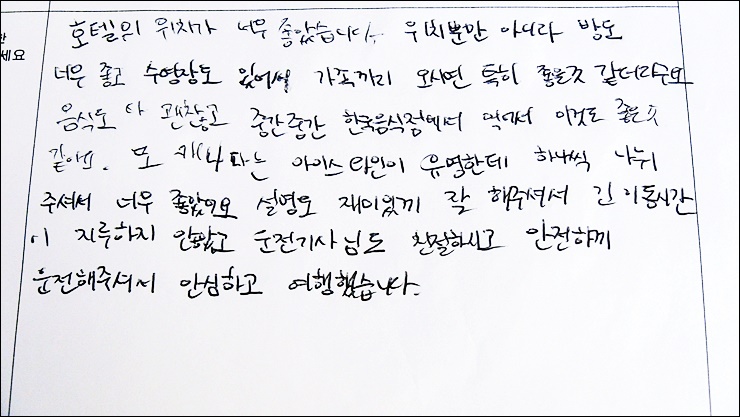 호텔의 위치가 너무 좋았습니다. 위치뿐만 아니라 방도
세요
너무 좋고 수영장도 있어서 가족끼리 오시면 특히 좋을것 같더라구요
음식도 다 괜찮고 중간중간 한국음식점에서 먹어서 이것도 좋은것
같아요. 또 캐나다는 아이스와인이 유명한데 하나씩 나눠
주셔서 너무 좋았어요 설명도 재미있게 잘 해주셔서 긴 이동시간
이 지루하지 않았고 운전기사님도 친절하시고 안전하게
운전해주셔서 안심하고 여행했습니다.